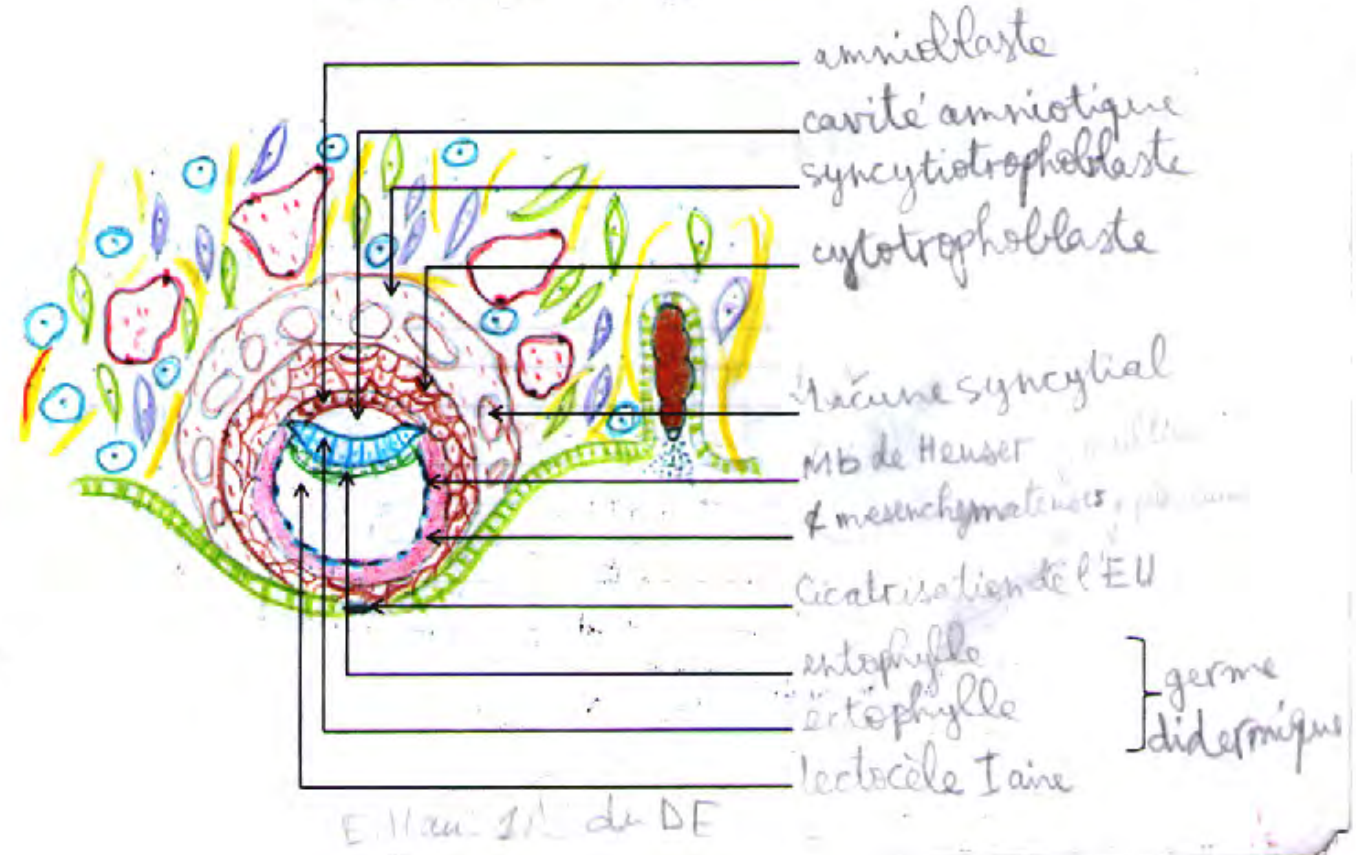 amnioblaste
cavité amniotique
syncytiotrophoblaste
cytotrophoblaste
lacune syncytial
Mb de Heuser
¢ mesenchymateuses
Cicatrisation de l'EU
entophylle
ectophylle
germe
didermique
lectocèle I aire
du DE